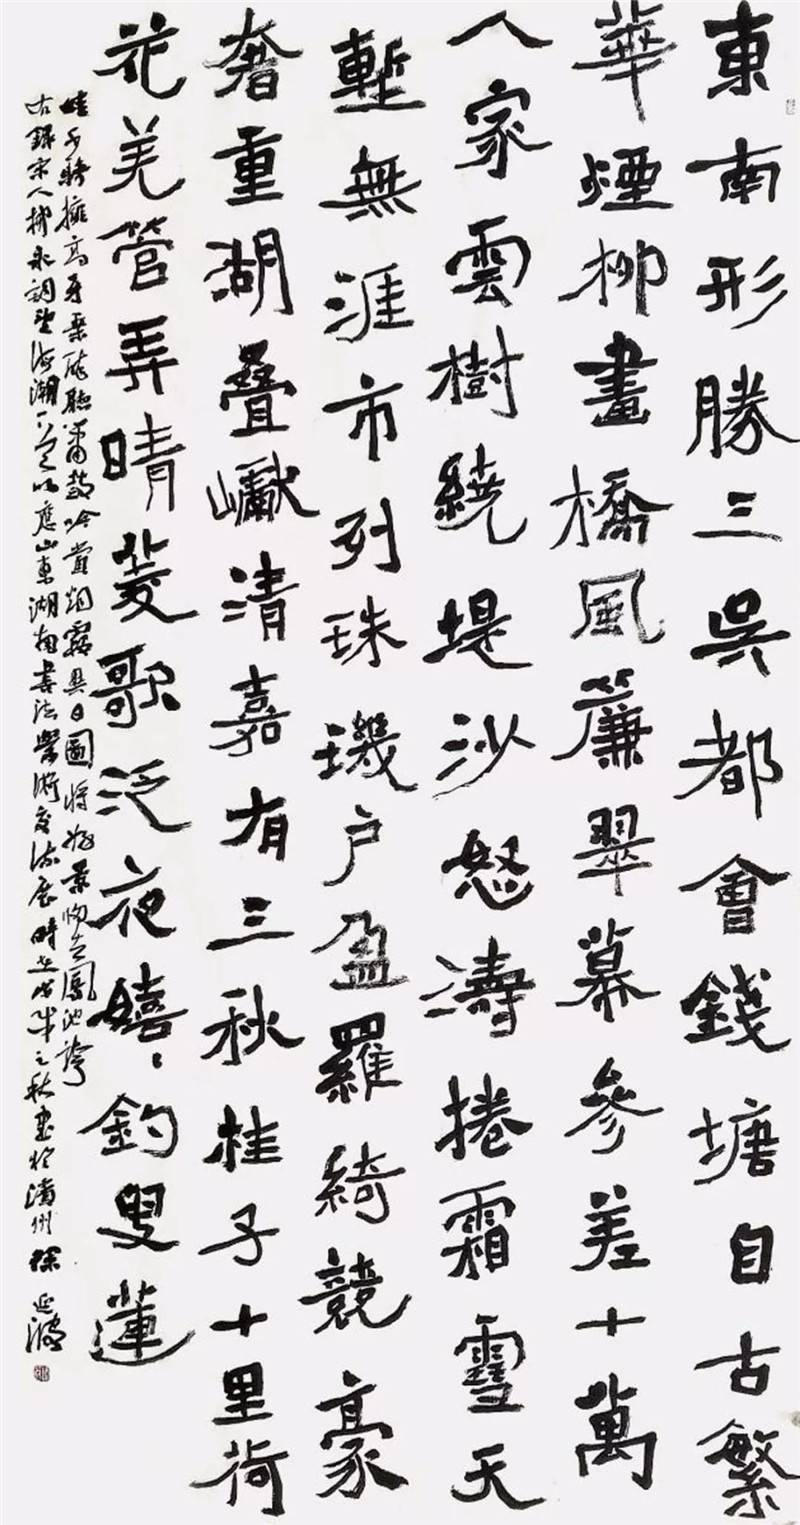 東南形勝三吳都會錢塘自古繁
華煙柳畫橋風簾翠幕參差十萬
人家雲樹繞堤沙怒濤捲霜雪天
塹無涯市列珠璣户盈羅綺競豪
奢重湖疊巘清嘉有三秋桂子十里荷
花羌管弄晴菱歌泛夜嬉〻釣叟蓮
娃千騎擁高牙乘醉聽簫鼓吟賞烟霞異日圖將好景歸去鳳池誇
右錄宋人柳永詞望海潮一首以應山東湖南書法學術交流展時在戊戌之秋書於州延波